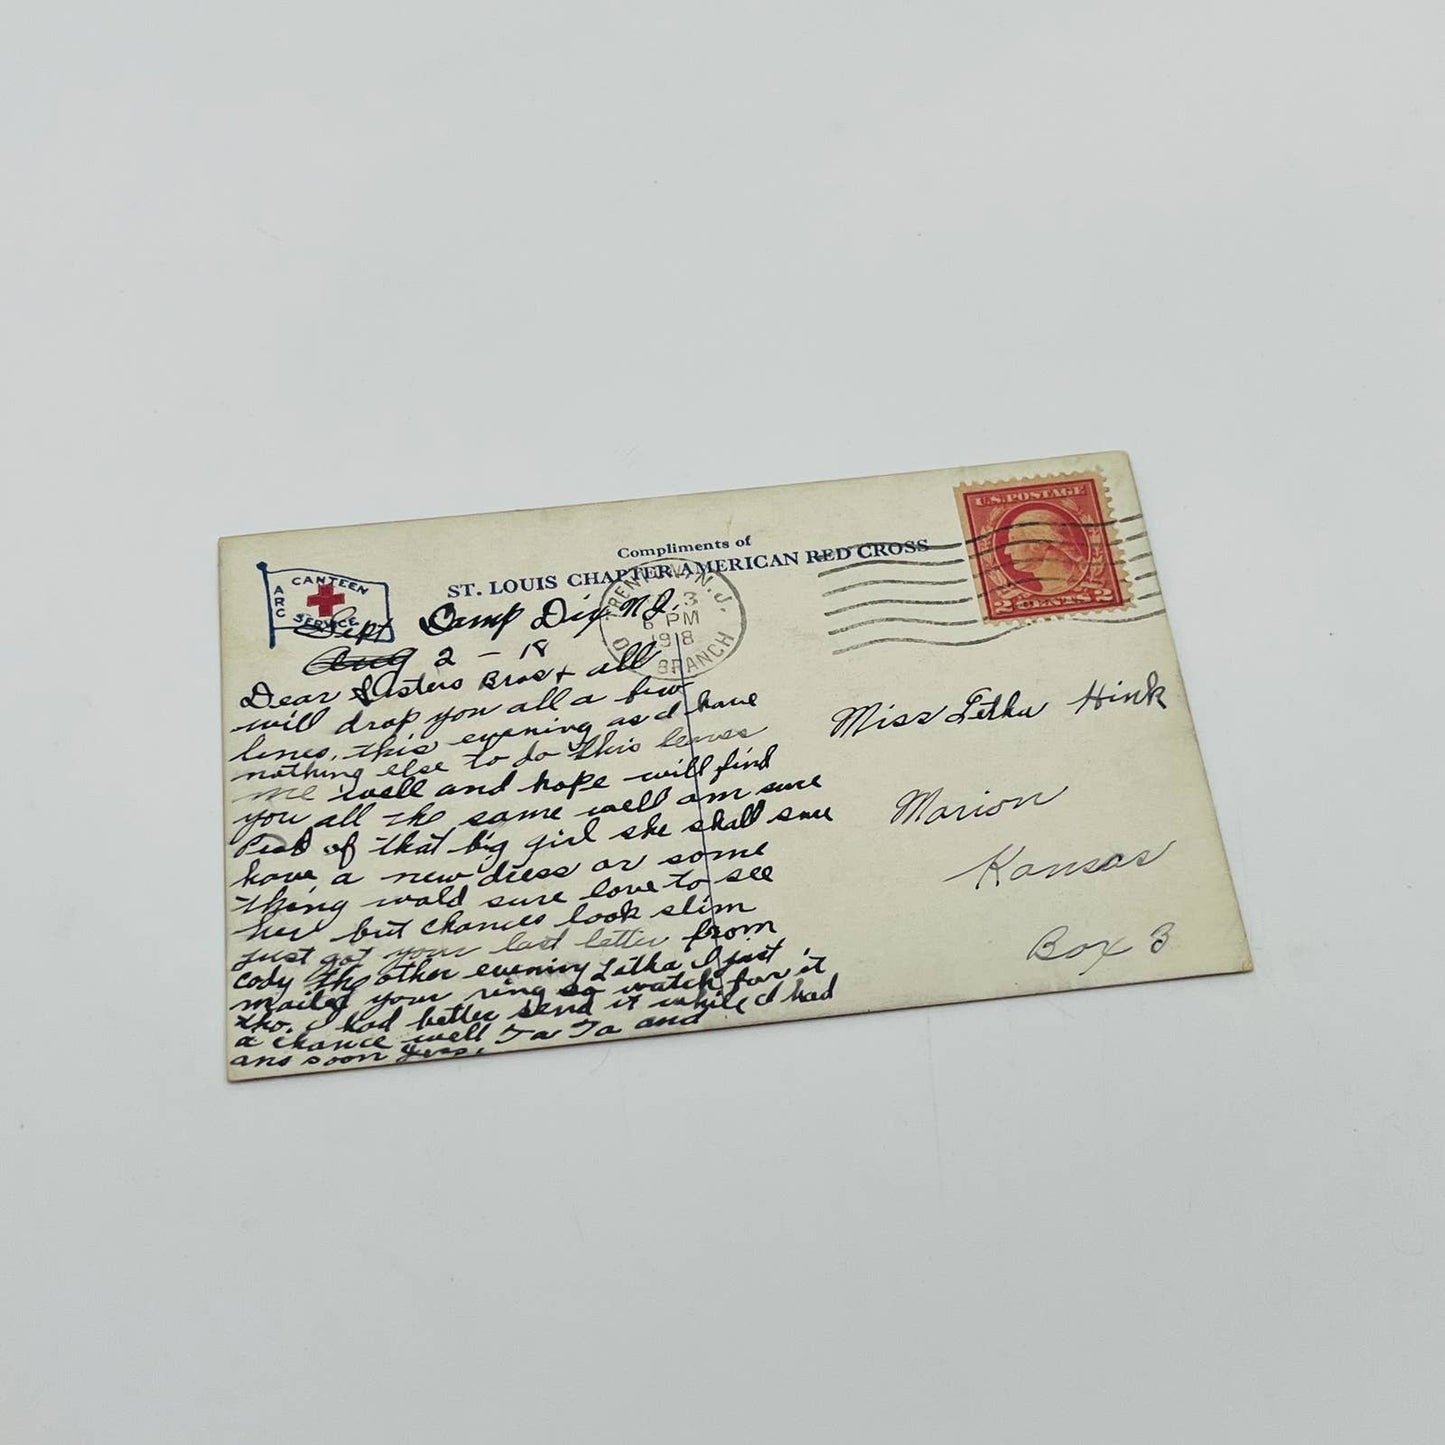 Compliments of
ST. LOUIS CHAPTER AMERICAN RED CROSS
ARC
CANTEEN
SERVICE
U.S. POSTAGE
2 CENTS 2
TRENTON, N.J.
3
6 PM
1918
BRANCH
Sept Camp Dix N.J.
Aug 2 - 18
Dear Sisters Bros + all
will drop you all a few
lines, this evening as I have
nothing else to do this leaves
me well and hope will find
you all the same well am sure
Proud of that big girl she shall sure
have a new dress or some
thing wold sure love to see
her but chances look slim
just got your last letter from
Cody the other evening Letha I just
mailed your ring so watch for it
I had better send it while I had
a chance well Ta Ta and
ans soon
Miss Letha Hink
Marion
Kansas
Box 3